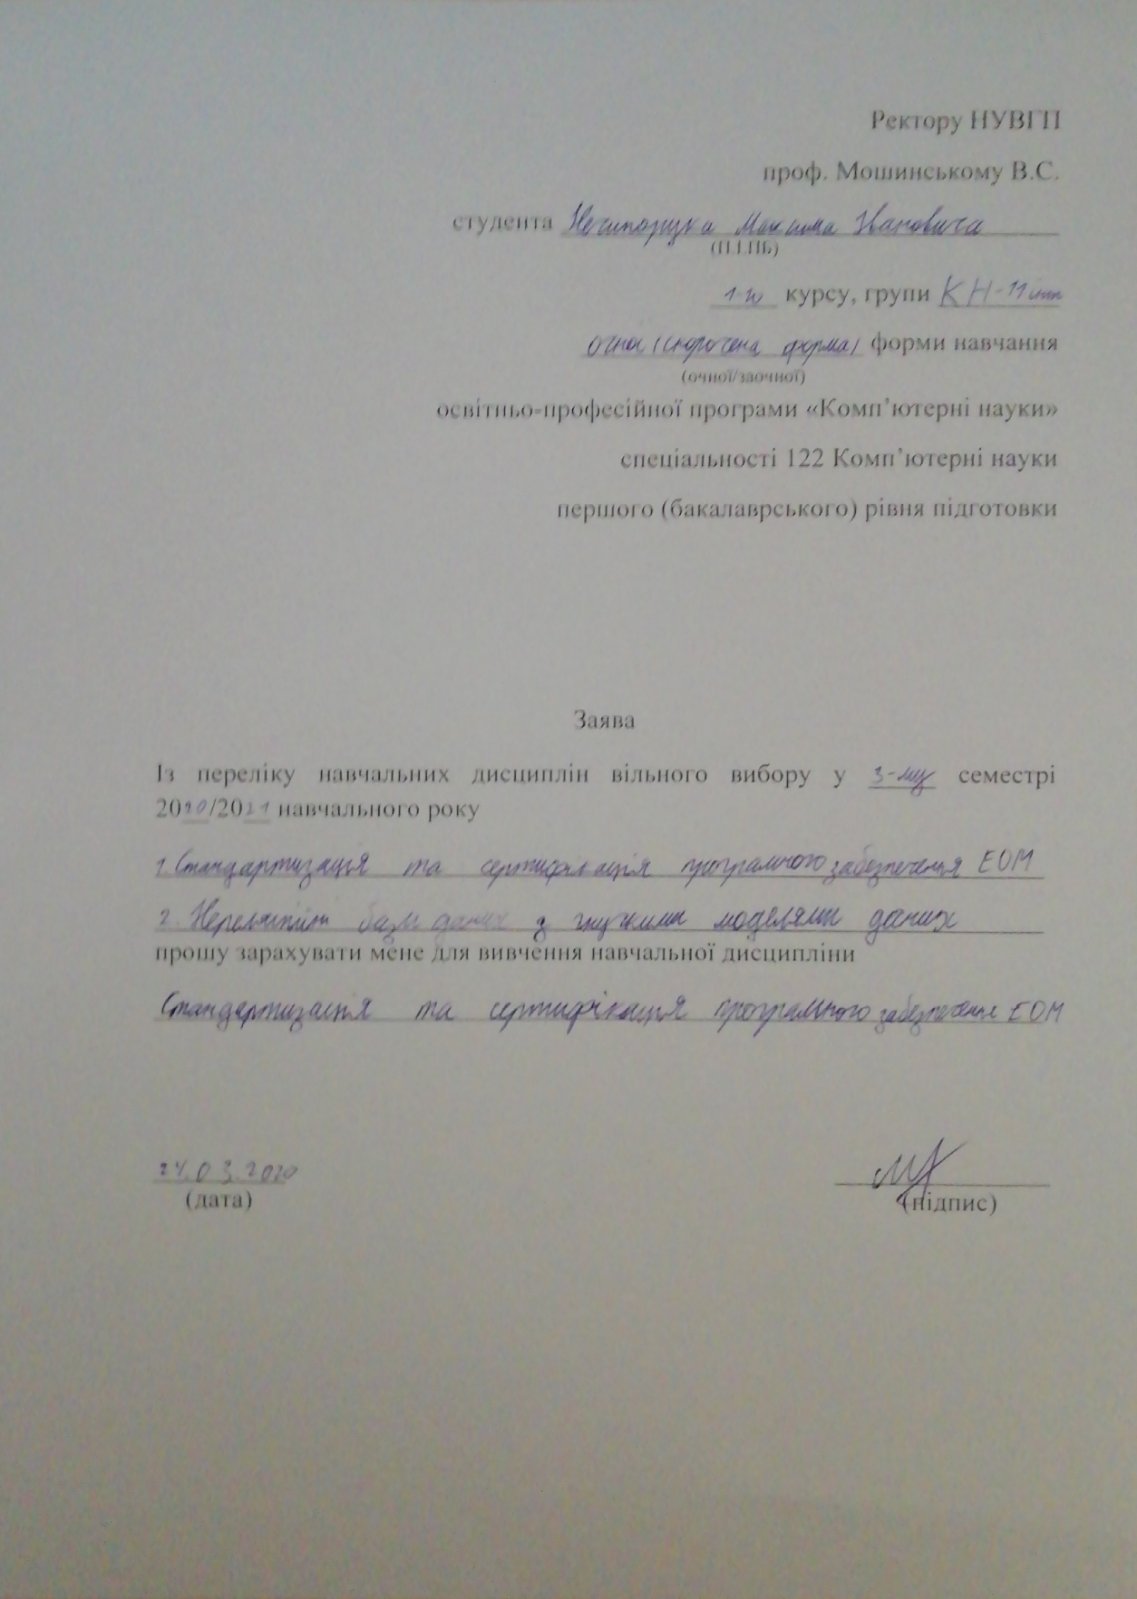 Ректору НУВГП
проф. Мошинському В.С.
студента Нечипорука Максима Івановича
(П.І.ПБ)
1-го курсу, групи КН-11інт
очної (скорочена форма) форми навчання
(очної/заочної)
освітньо-професійної програми «Комп’ютерні науки»
спеціальності 122 Комп’ютерні науки
першого (бакалаврського) рівня підготовки
Заява
Із переліку навчальних дисциплін вільного вибору у 3-му семестрі
2020/2021 навчального року
1. Стандартизація та сертифікація програмного забезпечення ЕОМ
2. Нереляційні бази даних з гнучкими моделями даних
прошу зарахувати мене для вивчення навчальної дисципліни
Стандартизація та сертифікація програмного забезпечення ЕОМ
24.03.2020
(дата)
(підпис)